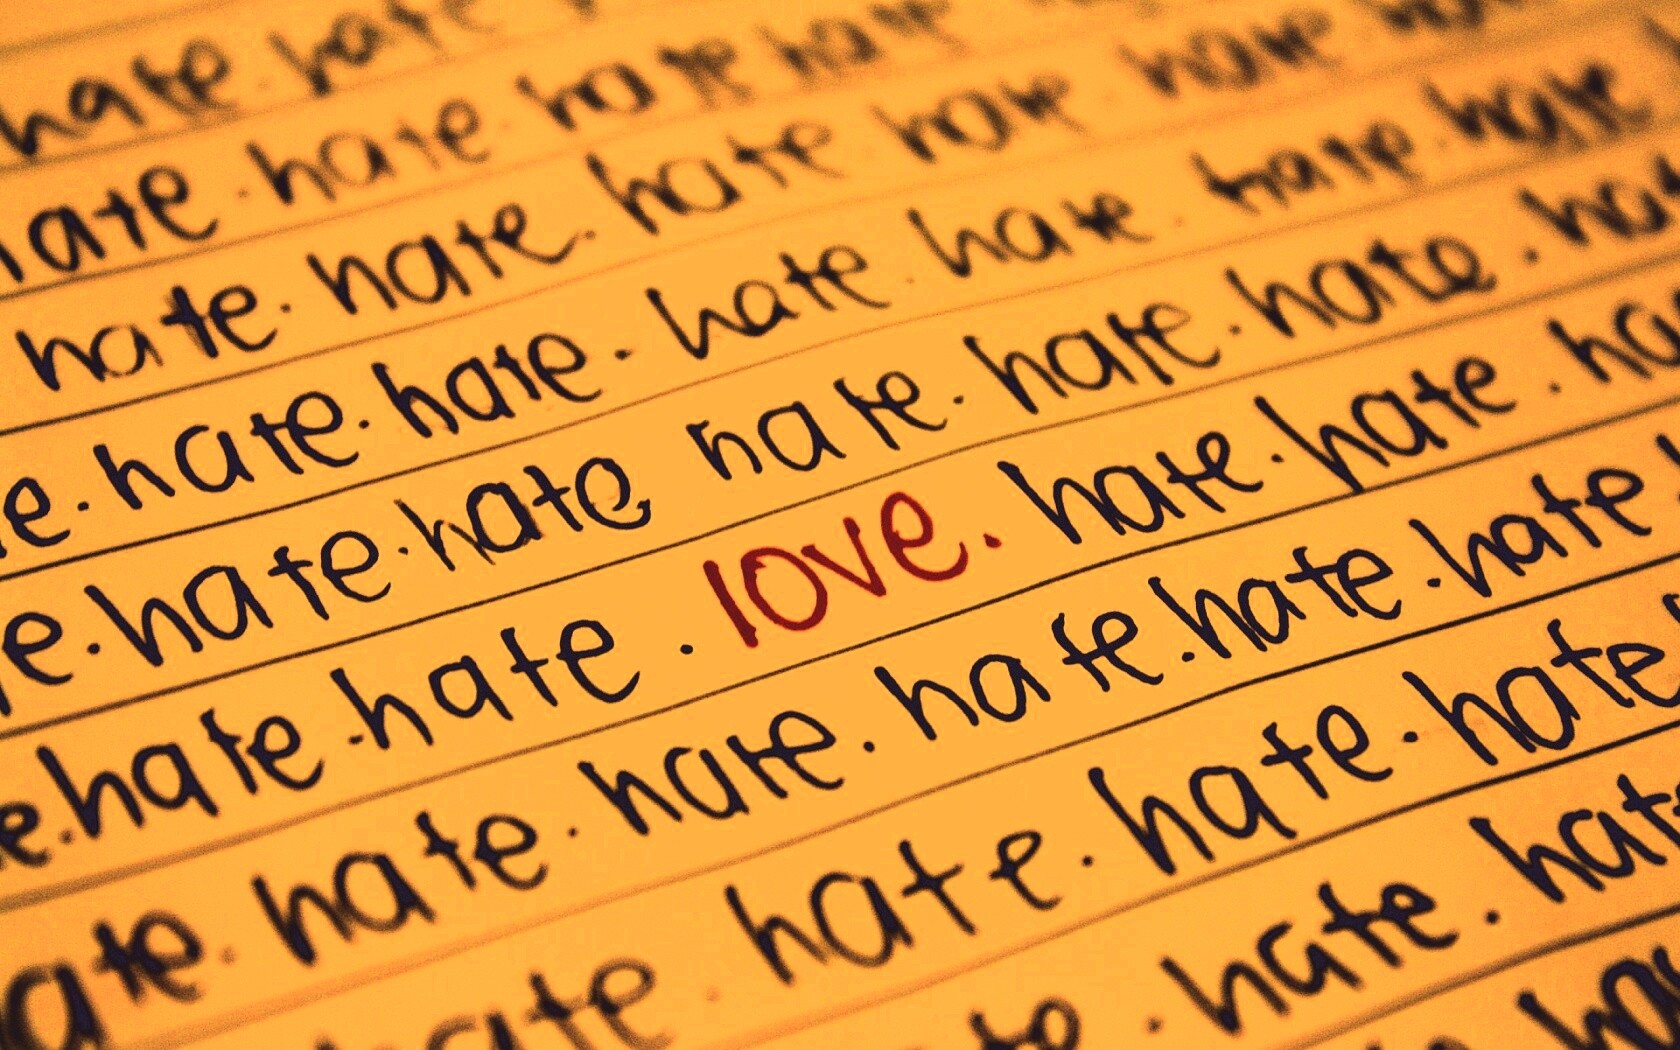 hate. hate
ate. hate hate hate
hate. hate. hate hate. hate
e. hate. hate. hate. hate. hate. hate
e. hate. hate hate. hate. hate. ha
e. hate. hate. love. hate. hate. ha
ate. hate. hate. hate. hate. hate
ate. hate. hate. hate
. hate. hat